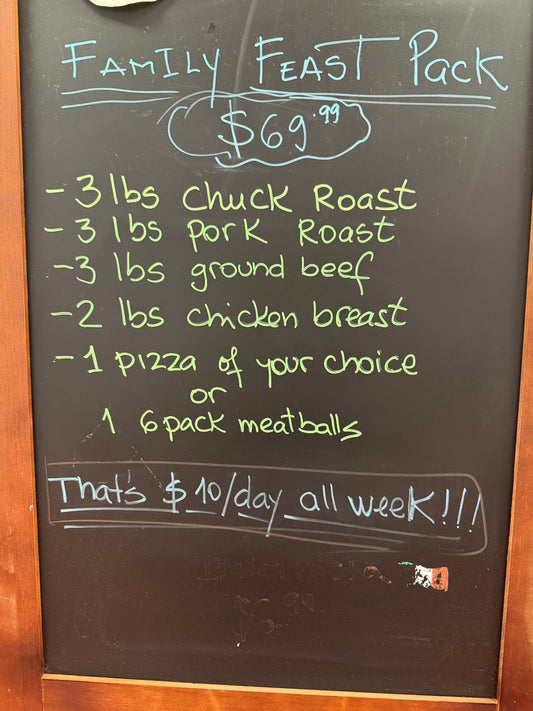 FAMILY FEAST Pack
$69.99
- 3 lbs chuck Roast
- 3 lbs pork Roast
- 3 lbs ground beef
- 2 lbs chicken breast
- 1 pizza of your choice
or
1 6 pack meatballs
That's $10/day all week!!!